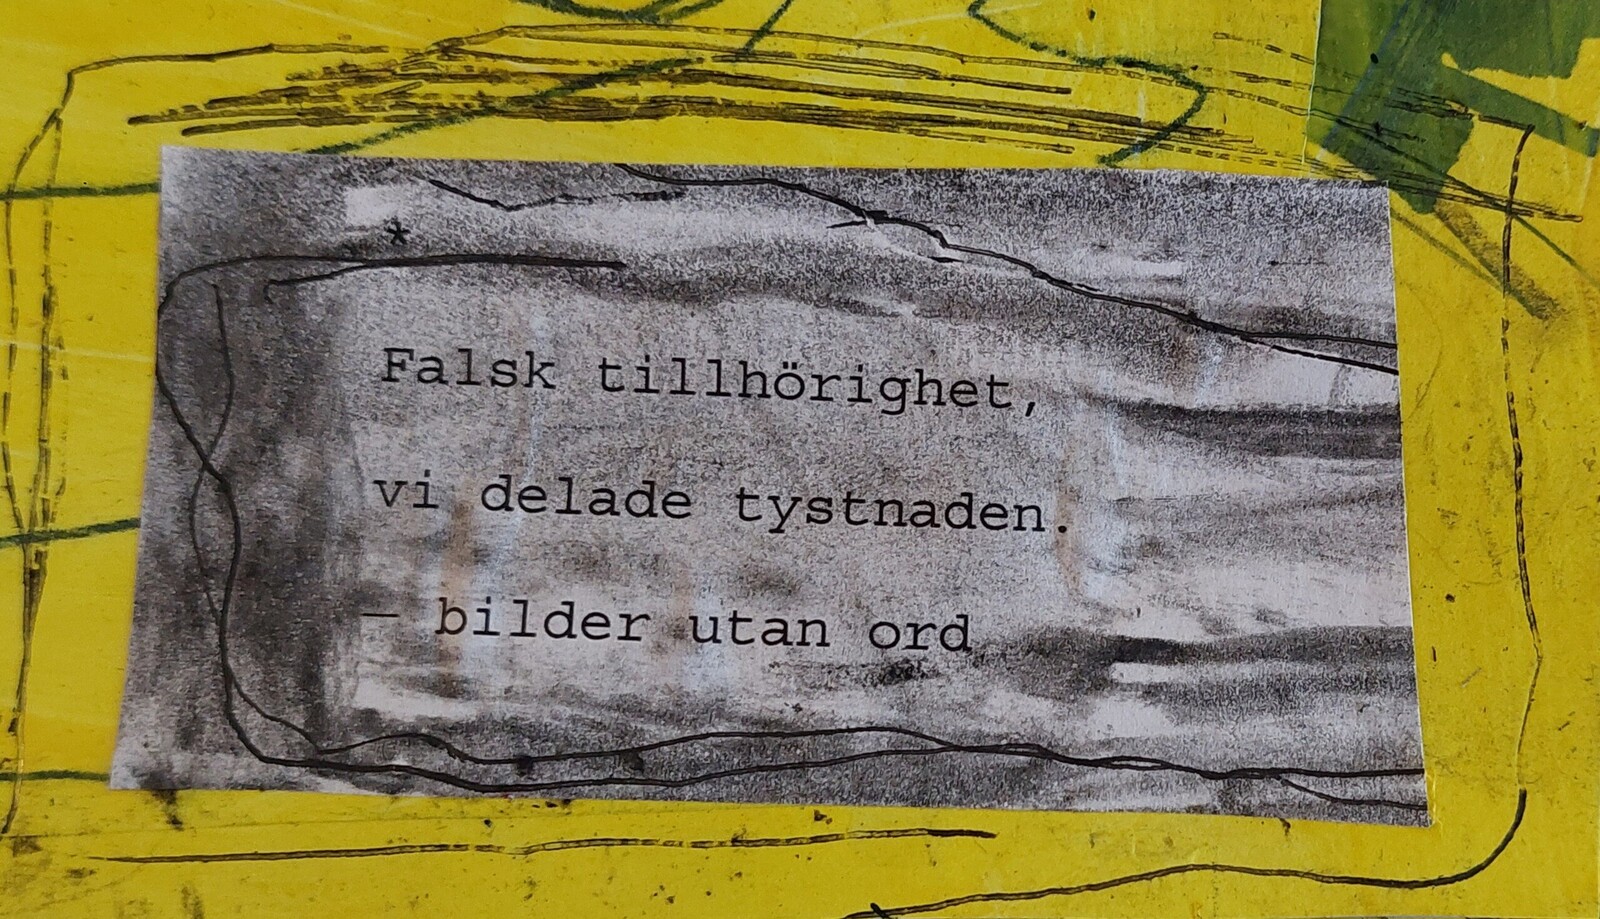 *
Falsk tillhörighet,
vi delade tystnaden.
— bilder utan ord